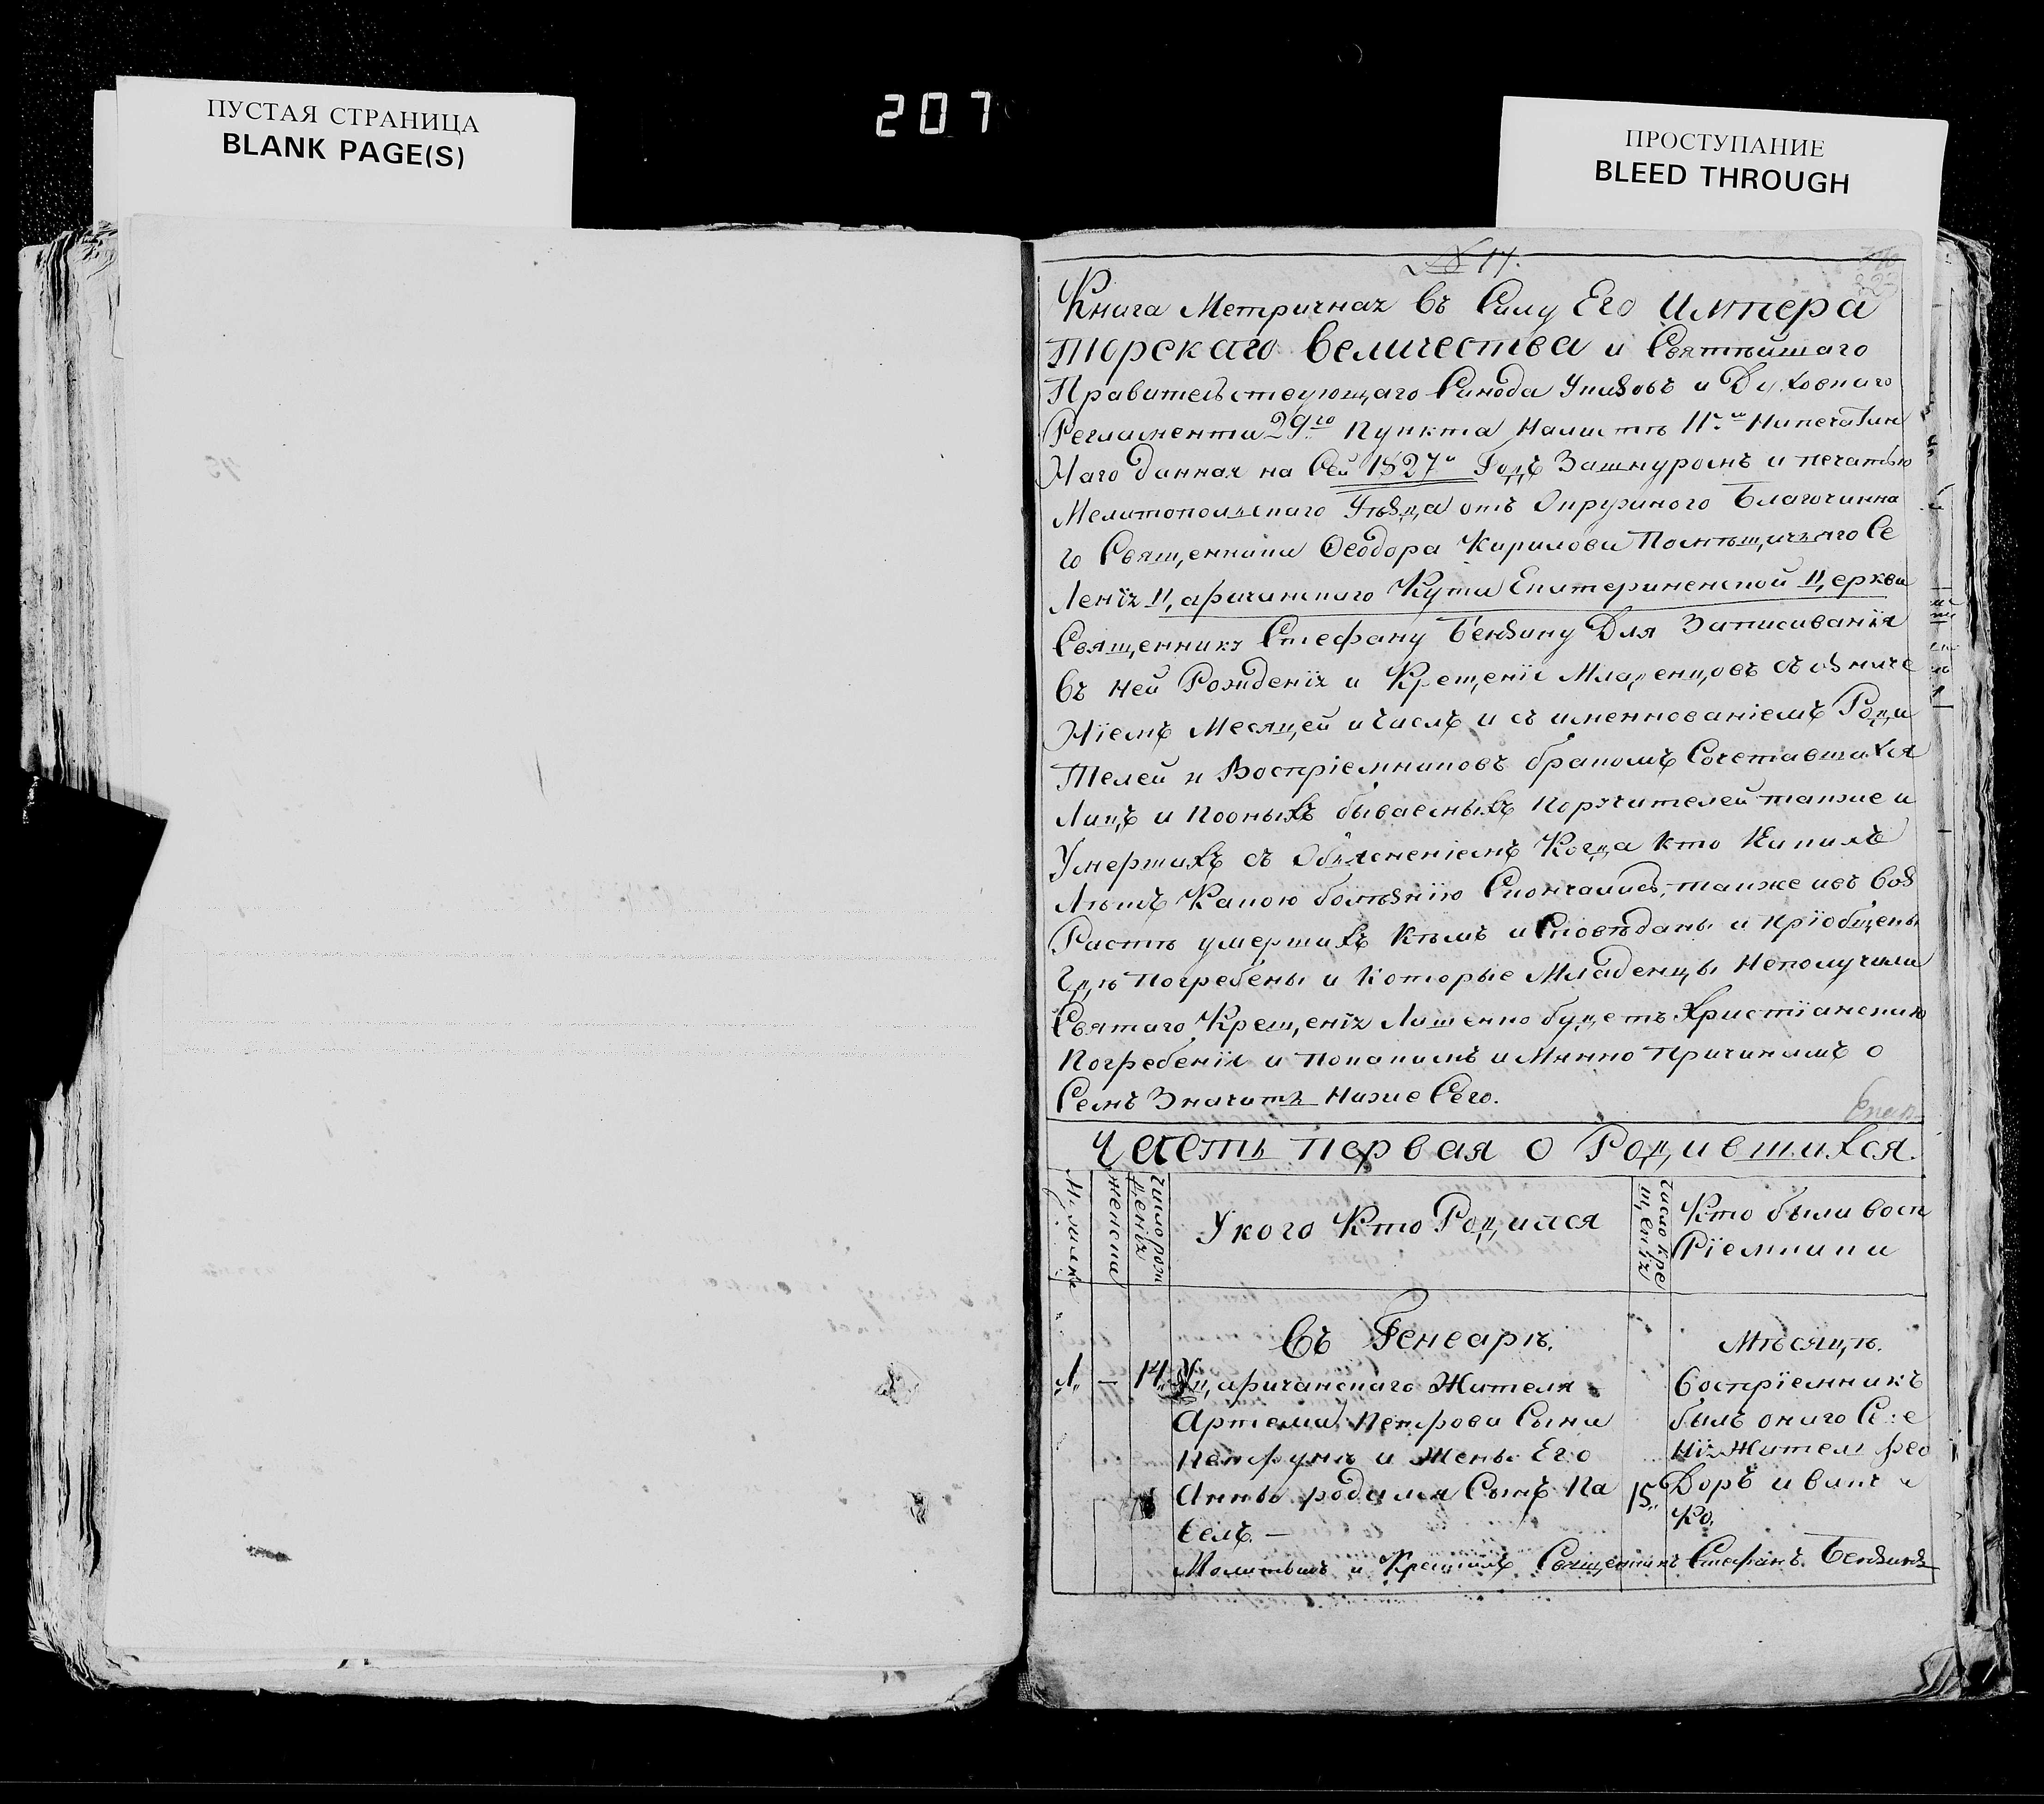 ПУСТАЯ СТРАНИЦА
BLANK PAGE(S)
207
ПРОСТУПАНИЕ
BLEED THROUGH
№ 17.
Книга Метричная въ Силу Его Импера
торскаго величества и Святѣйшаго
Правительствующаго Синода Указовъ и Духовнаго
Регламента 29го Пункта На листѣ Напечатан
наго данная на Сей 1827й Годъ Зашнуромъ и печатью
Мелитопольскаго Уѣзда отъ Окружного Благочинна
го Священника Феодора Кирилова Помѣщичяго Се
ленїя Царичанскаго Кута Екатериненской Церкви
Священнику Стефану Бензину Для Записиванїя
въ ней Рожденїя и Крещенїе Младенцовъ съ означе
нїемъ Месяцей и Числъ и съ именнованїемъ Роди
телей и Воспрїемниковъ бракомъ Сочетавшихся
Лицъ и Пооныхъ бываемыхъ Поручителей также и
Умершихъ съ Объясненїемъ Когда кто Какихъ
Лѣтъ Какою болѣзнїю Скончались, также изъ Воз
растѣ умершихъ Кѣмъ исповѣданы и прїобщены
Гдѣ Погребены и Которые Младенцы Неполучили
Святаго Крещенїя Лишенно будетъ Христїанскаго
Погребенїя и Покакимъ иМянно Причинамъ о
Семъ Значитъ Ниже Сего.
Часть первая о Родившихся.
женска
Число рож
денїя
У кого Кто Родился
Число кре
щенїя
Кто были восп
рїемники
Въ Генварѣ.
Мѣсяцѣ.
1. — 14. Царичанскаго Жителя
Воспрїемникъ
Артема Петрова Сына
былъ онаго Селе
и Жены Его
нїя Житель Фео
Анны родился Сынъ Па
15. Доръ
велъ. —
ко.
Молитвилъ и Крестилъ Священникъ Стефанъ Бензинъ